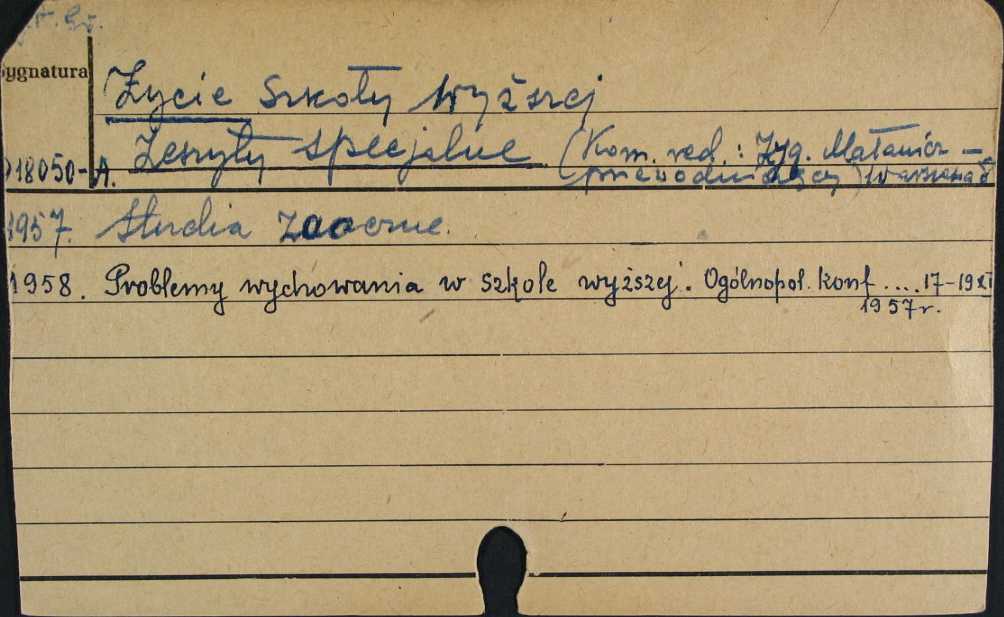 Sygnatura
Życie Szkoły Wyższej
Zeszyty specjalne (Kom. red.: Zyg. Małanicz -
18050-A. przewodniczący) Warszawa
1957. Studia zaoczne.
1958. Problemy wychowania w szkole wyższej. Ogólnopol. konf .... 17-19 XI
1957 r.